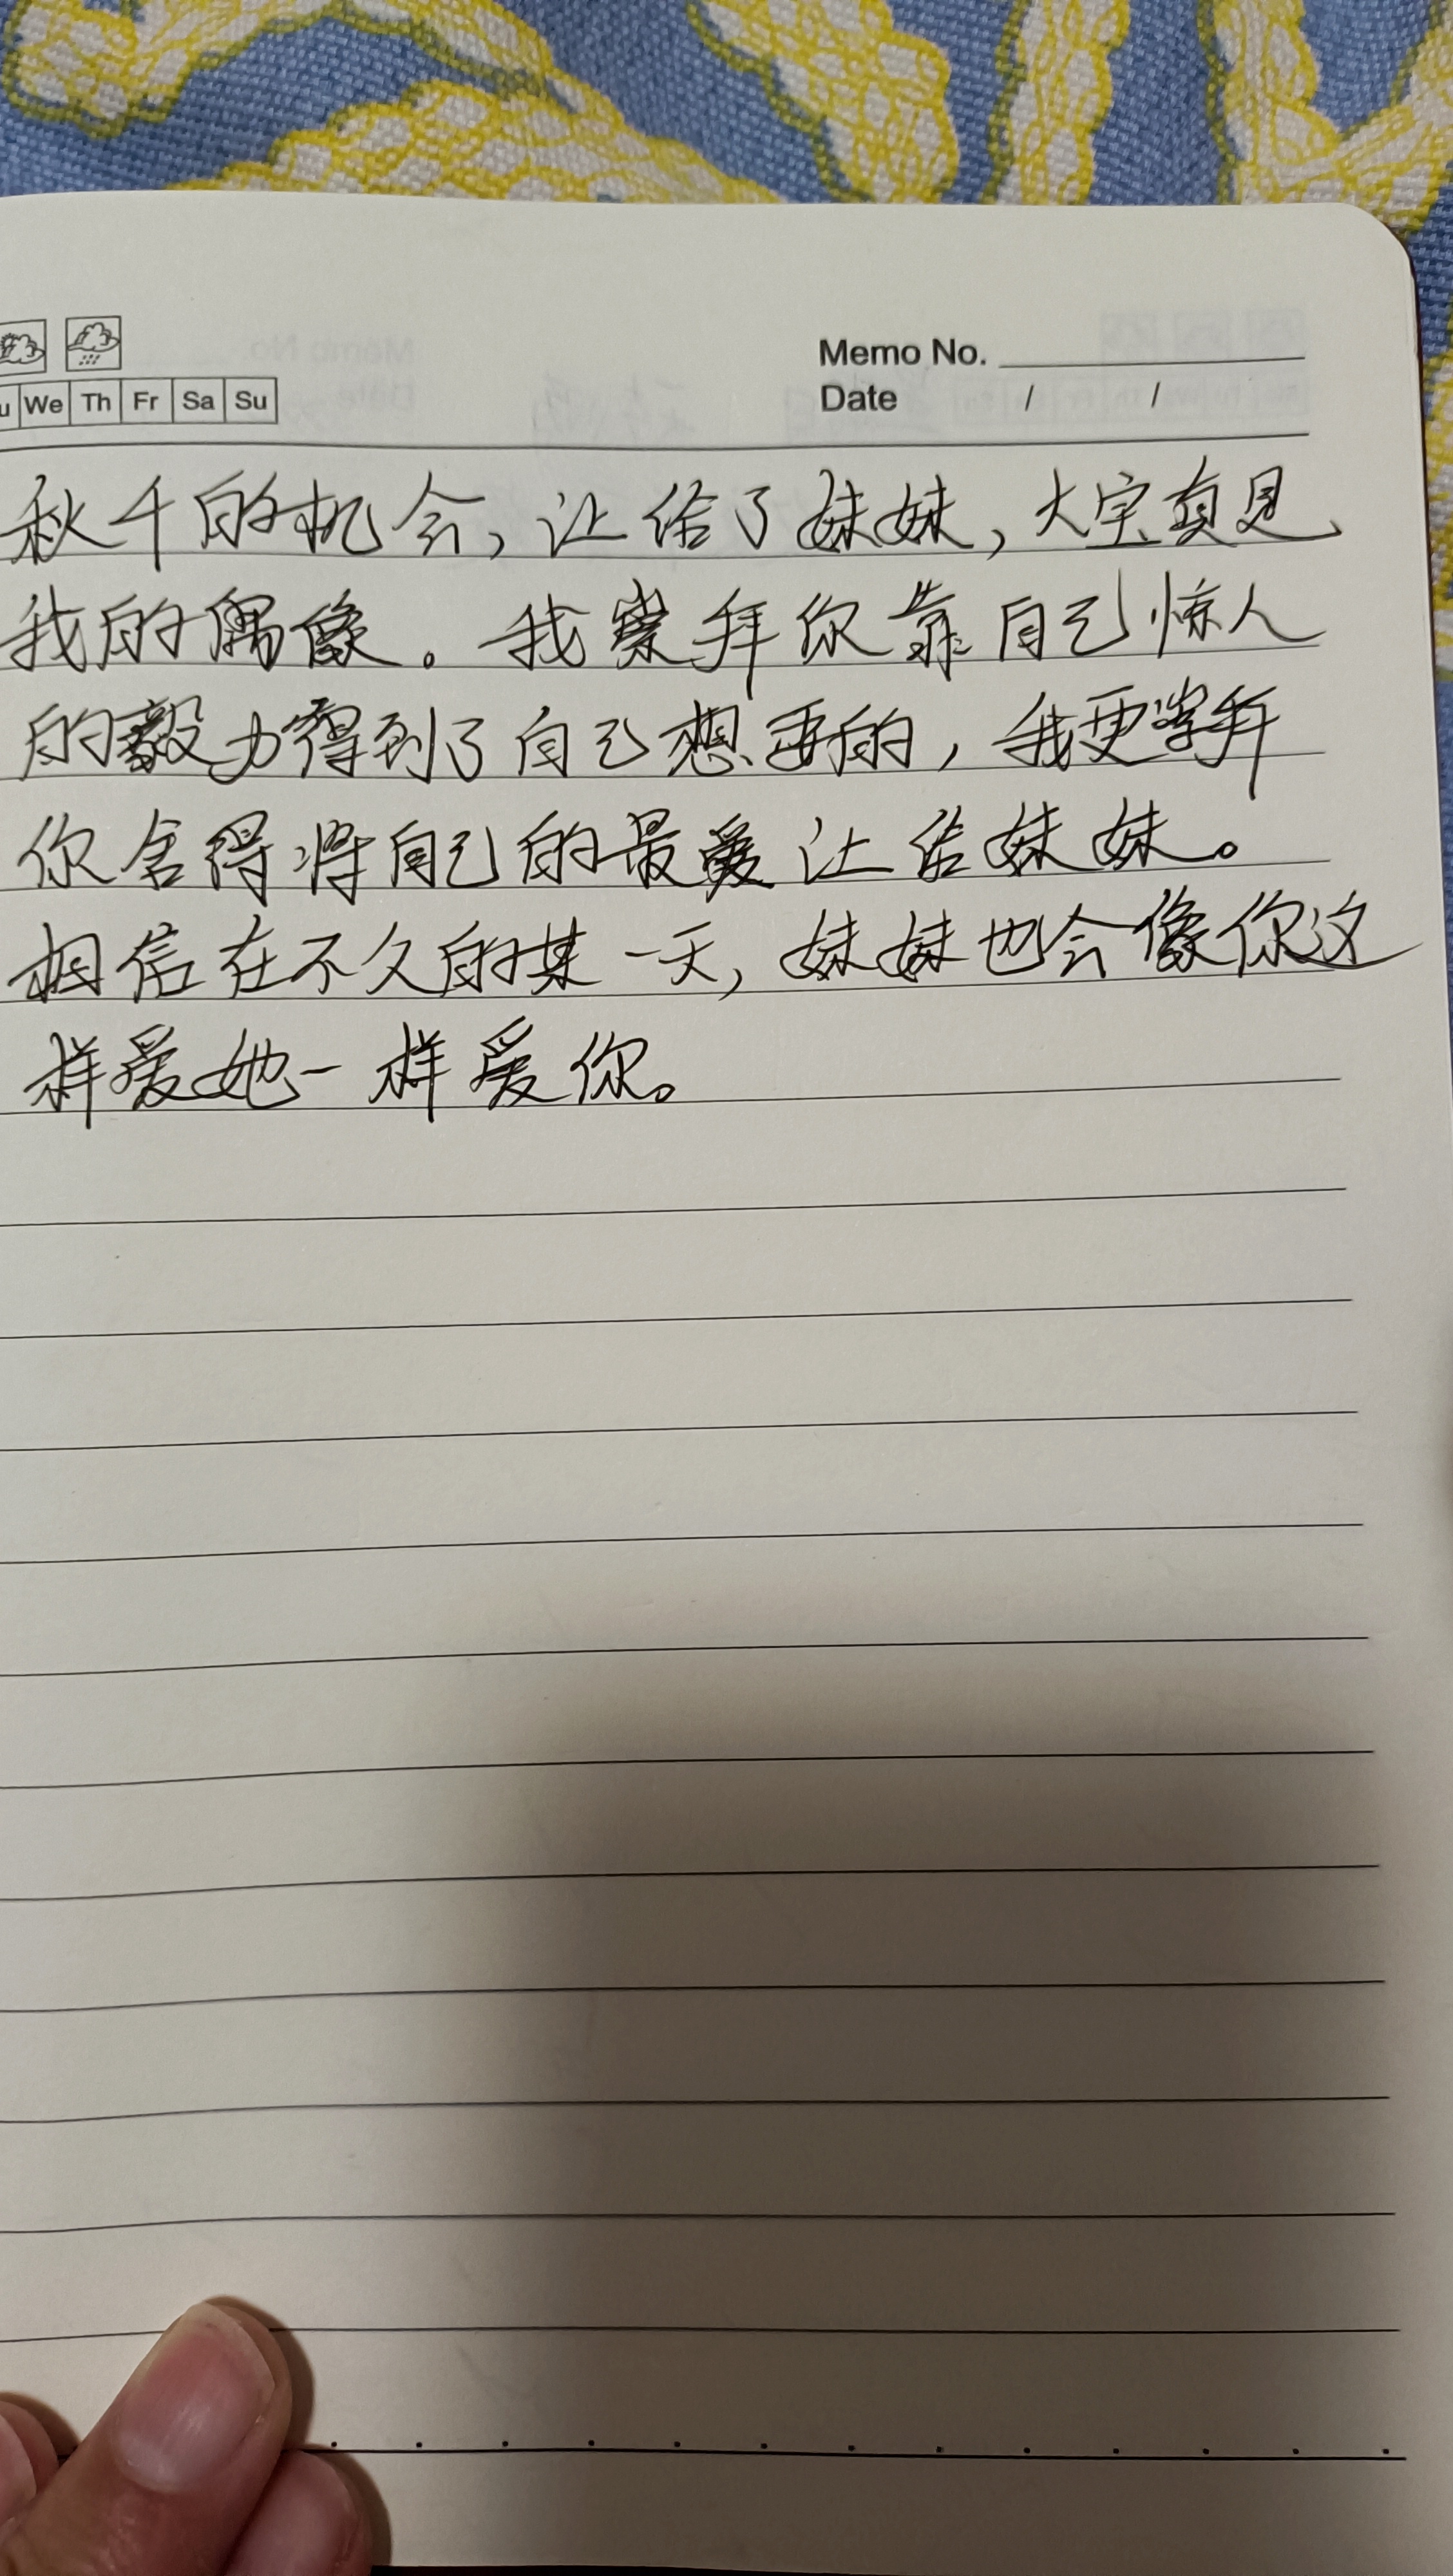 Memo No.
We Th Fr Sa Su
Date / /
秋千的机会,让给了妹妹,大宝真是
我的偶像。我崇拜你靠自己惊人
的毅力得到了自己想要的,我更崇拜
你舍得将自己的最爱让给妹妹。
相信在不久的某一天,妹妹也会像你这
样爱她一样爱你。